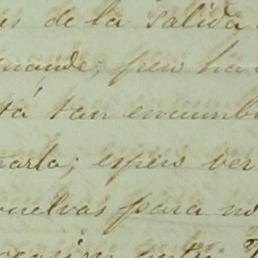 s de la salida
grande; pero ha
tá tan encumb
arla; espero ver
vuelvas para no